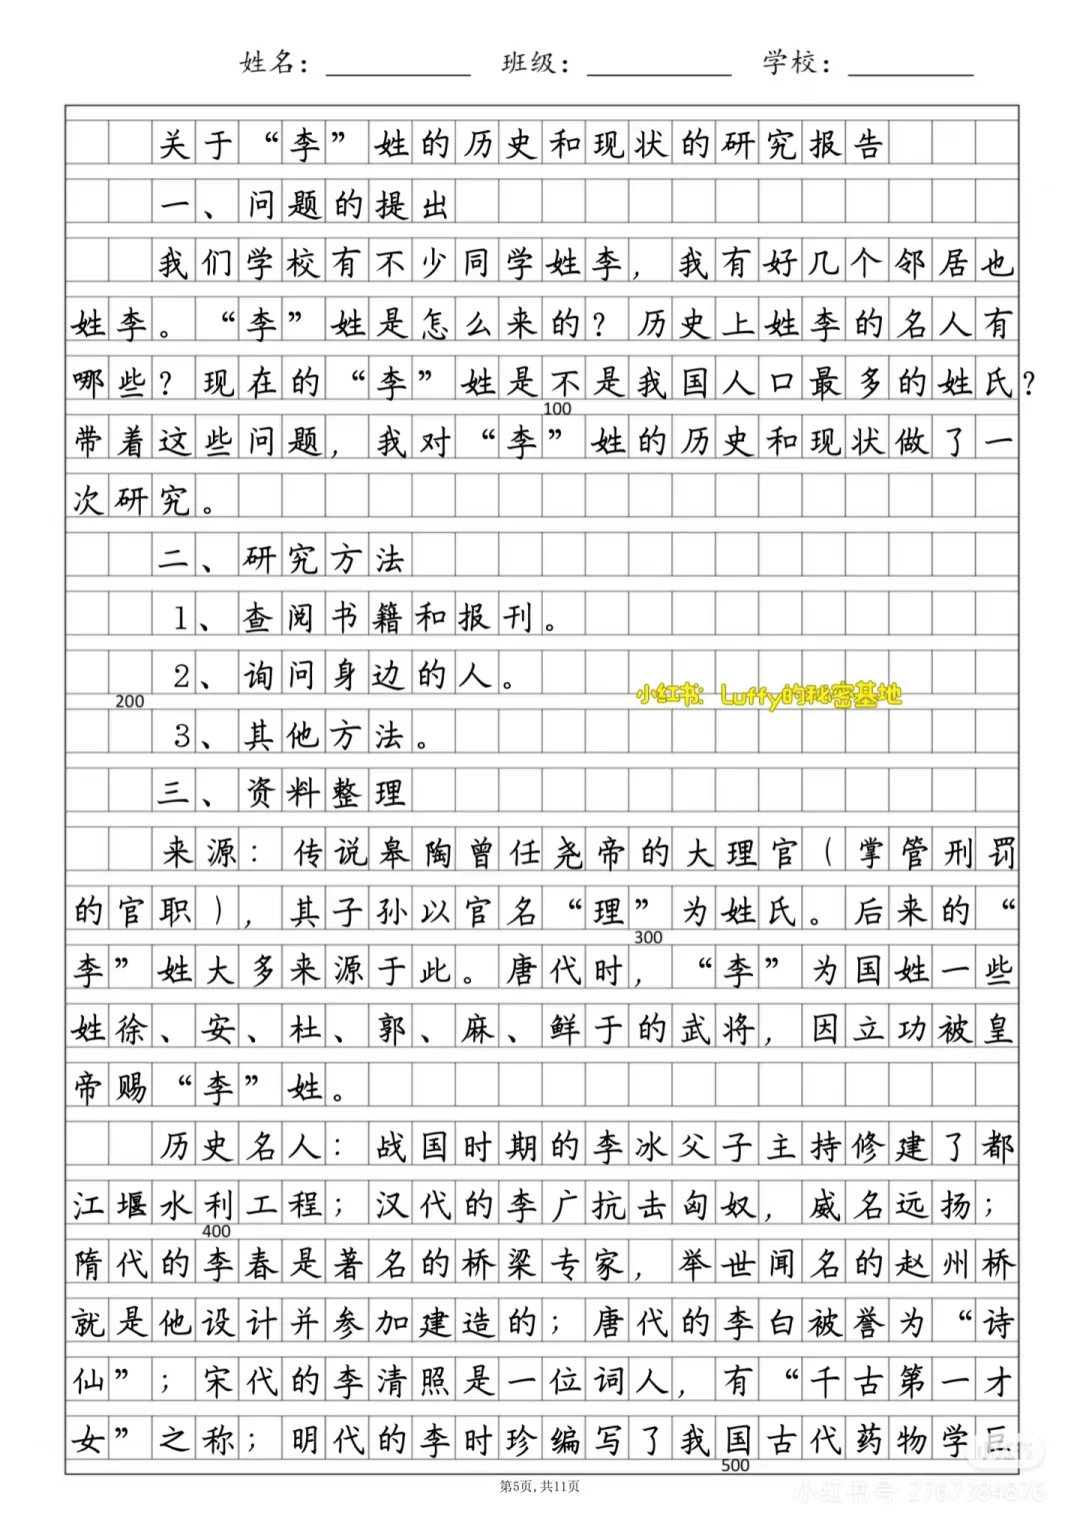 姓名：________ 班级：________ 学校：________
关于“李”姓的历史和现状的研究报告
一、问题的提出
我们学校有不少同学姓李，我有好几个邻居也
姓李。“李”姓是怎么来的？历史上姓李的名人有
哪些？现在的“李”姓是不是我国人口最多的姓氏？
100
带着这些问题，我对“李”姓的历史和现状做了一
次研究。
二、研究方法
1、查阅书籍和报刊。
2、询问身边的人。
小红书：Luffy的秘密基地
200
3、其他方法。
三、资料整理
来源：传说皋陶曾任尧帝的大理官（掌管刑罚
的官职），其子孙以官名“理”为姓氏。后来的“
300
李”姓大多来源于此。唐代时，“李”为国姓一些
姓徐、安、杜、郭、麻、鲜于的武将，因立功被皇
帝赐“李”姓。
历史名人：战国时期的李冰父子主持修建了都
江堰水利工程；汉代的李广抗击匈奴，威名远扬；
400
隋代的李春是著名的桥梁专家，举世闻名的赵州桥
就是他设计并参加建造的；唐代的李白被誉为“诗
仙”；宋代的李清照是一位词人，有“千古第一才
女”之称；明代的李时珍编写了我国古代药物学巨
500
第5页，共11页
小红书
小红书号：2767384876